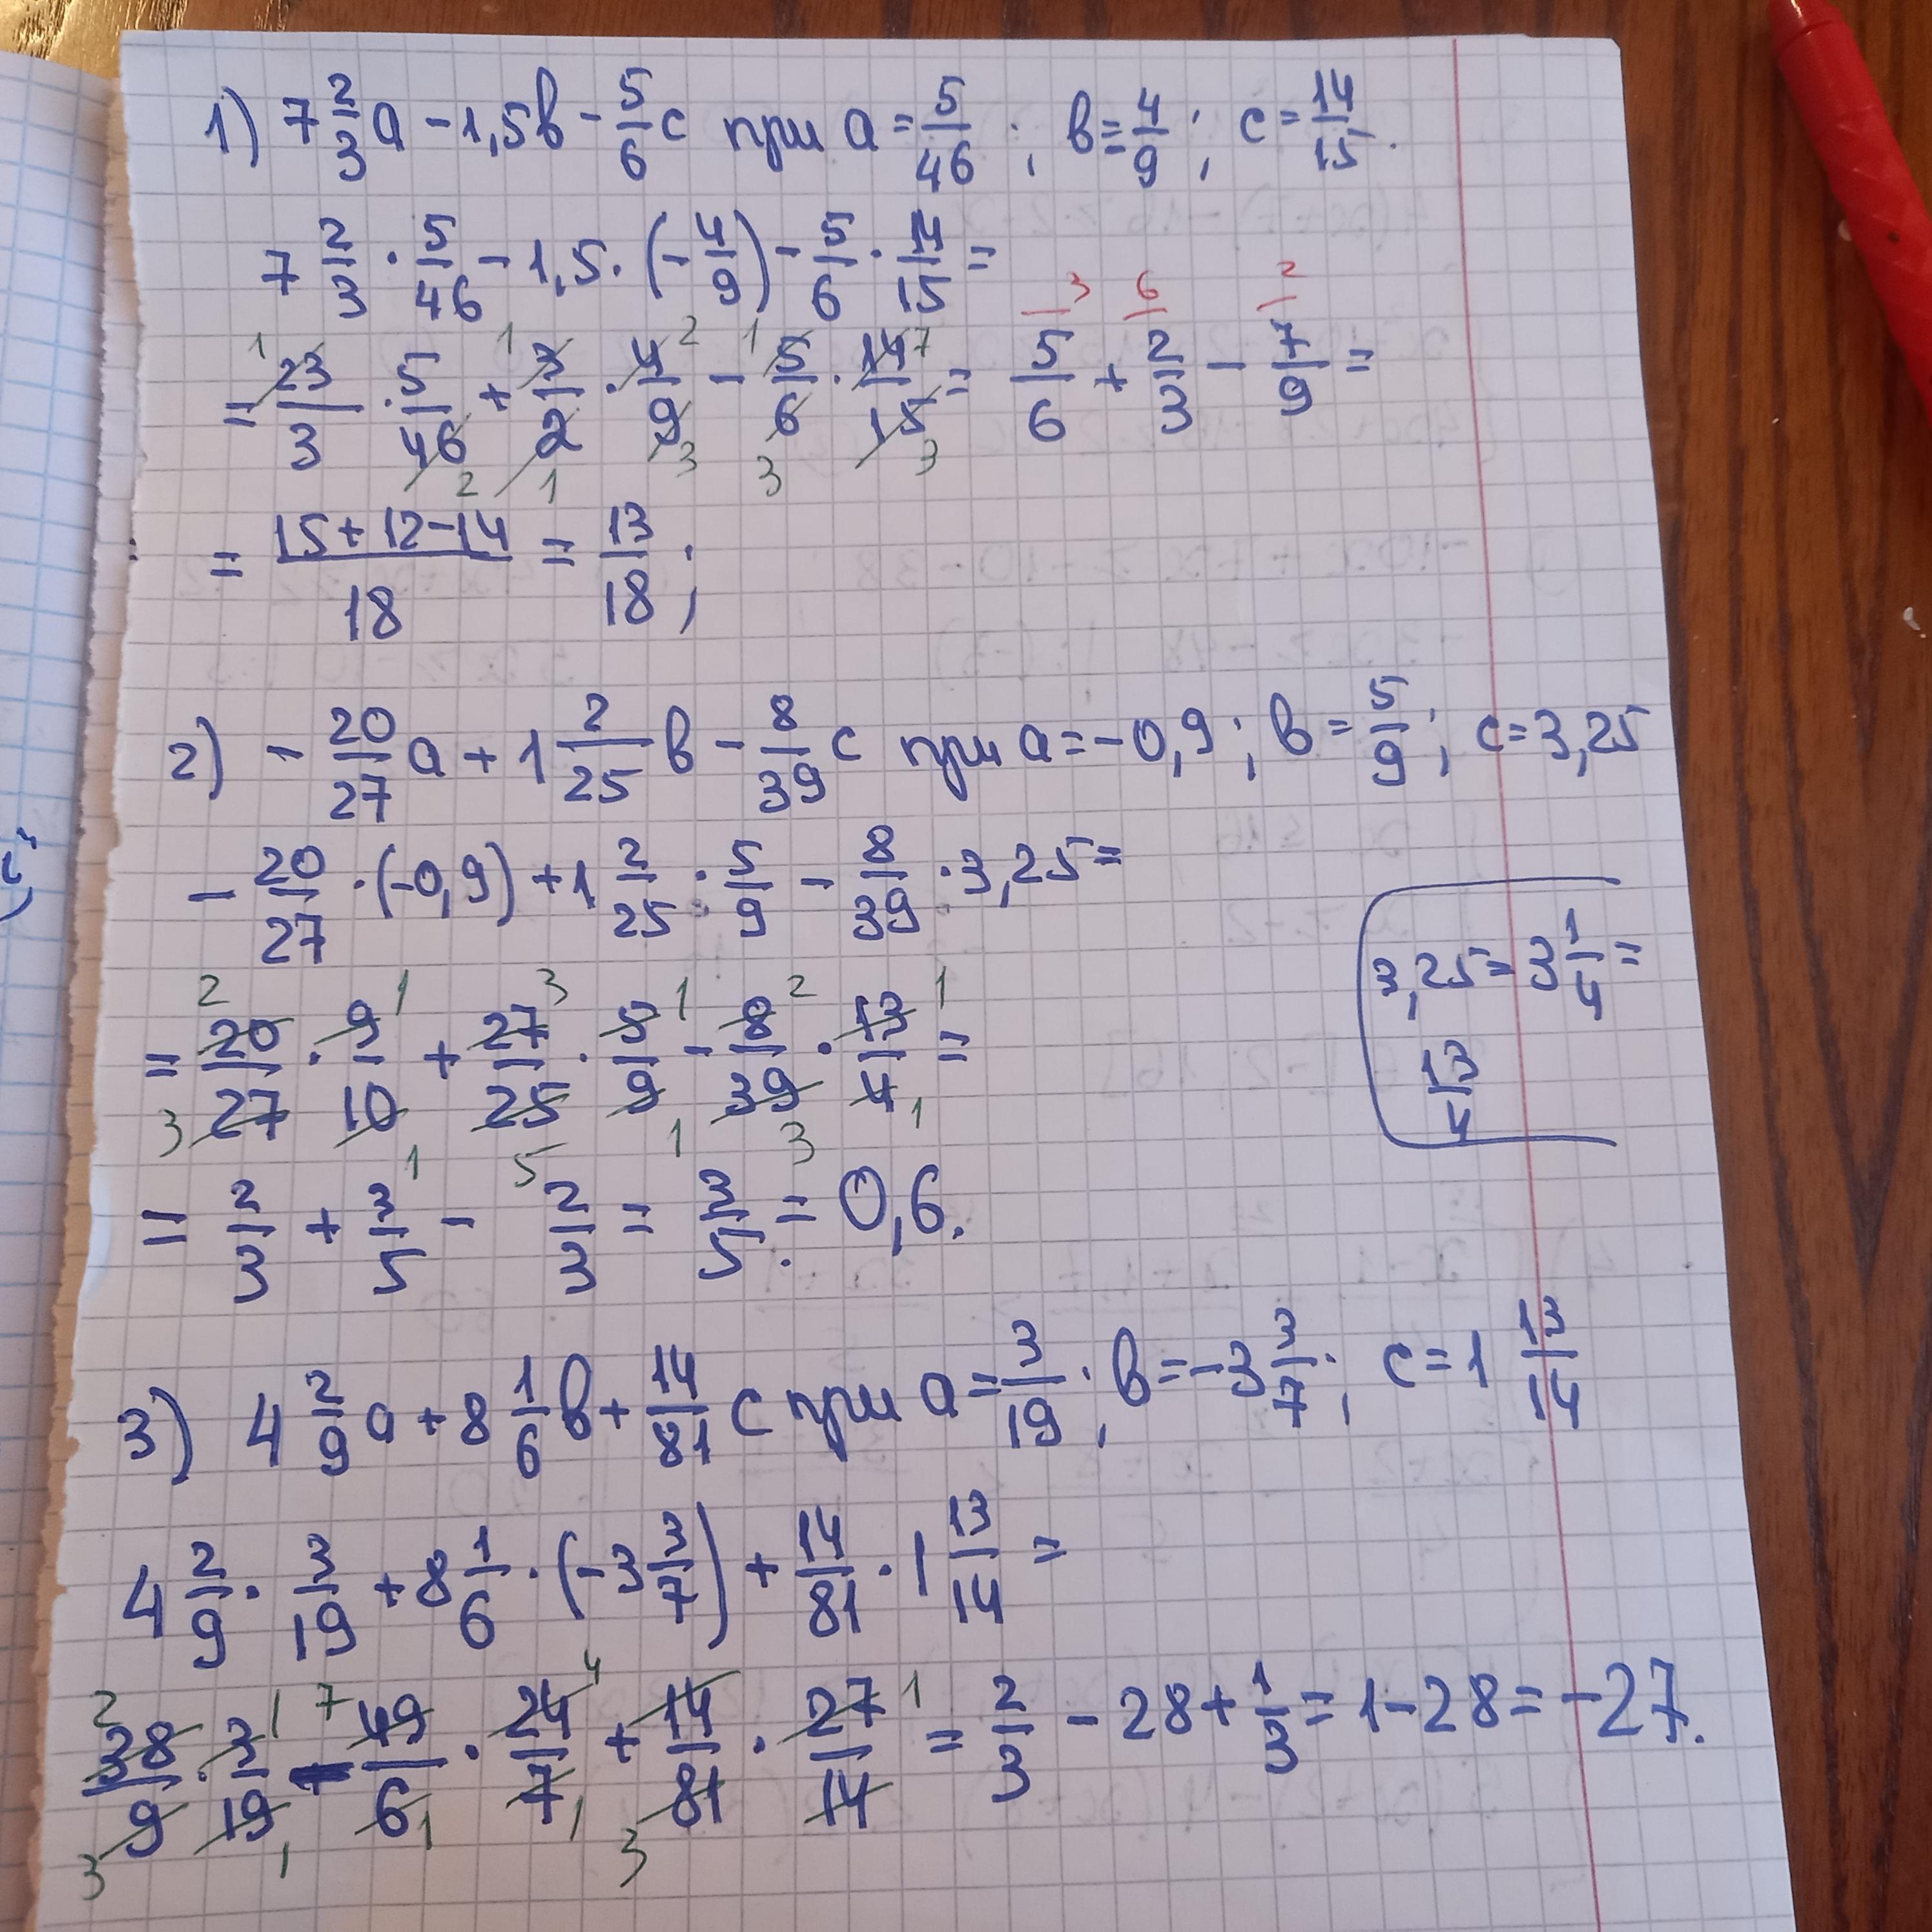 1) 7 2/3 a - 1,5в - 5/6 c при a = 5/46 ; в = 4/9 ; c = 14/15.
7 2/3 · 5/46 - 1,5 · (- 4/9) - 5/6 · 14/15 =
= 23/3 · 5/46 + 3/2 · 4/9 - 5/6 · 14/15 = 5/6 + 2/3 - 7/9 =
= (15 + 12 - 14)/18 = 13/18 ;
2) - 20/27 a + 1 2/25 в - 8/39 c при a = -0,9 ; в = 5/9 ; c = 3,25
- 20/27 · (-0,9) + 1 2/25 · 5/9 - 8/39 · 3,25 =
3,25 = 3 1/4 =
13/4
= 20/27 · 9/10 + 27/25 · 5/9 - 8/39 · 13/4 =
= 2/3 + 3/5 - 2/3 = 3/5 = 0,6.
3) 4 2/9 a + 8 1/6 в + 14/81 c при a = 3/19 ; в = -3 3/7 ; c = 1 13/14
4 2/9 · 3/19 + 8 1/6 · (-3 3/7) + 14/81 · 1 13/14 =
38/9 · 3/19 - 49/6 · 24/7 + 14/81 · 27/14 = 2/3 - 28 + 1/3 = 1 - 28 = -27.